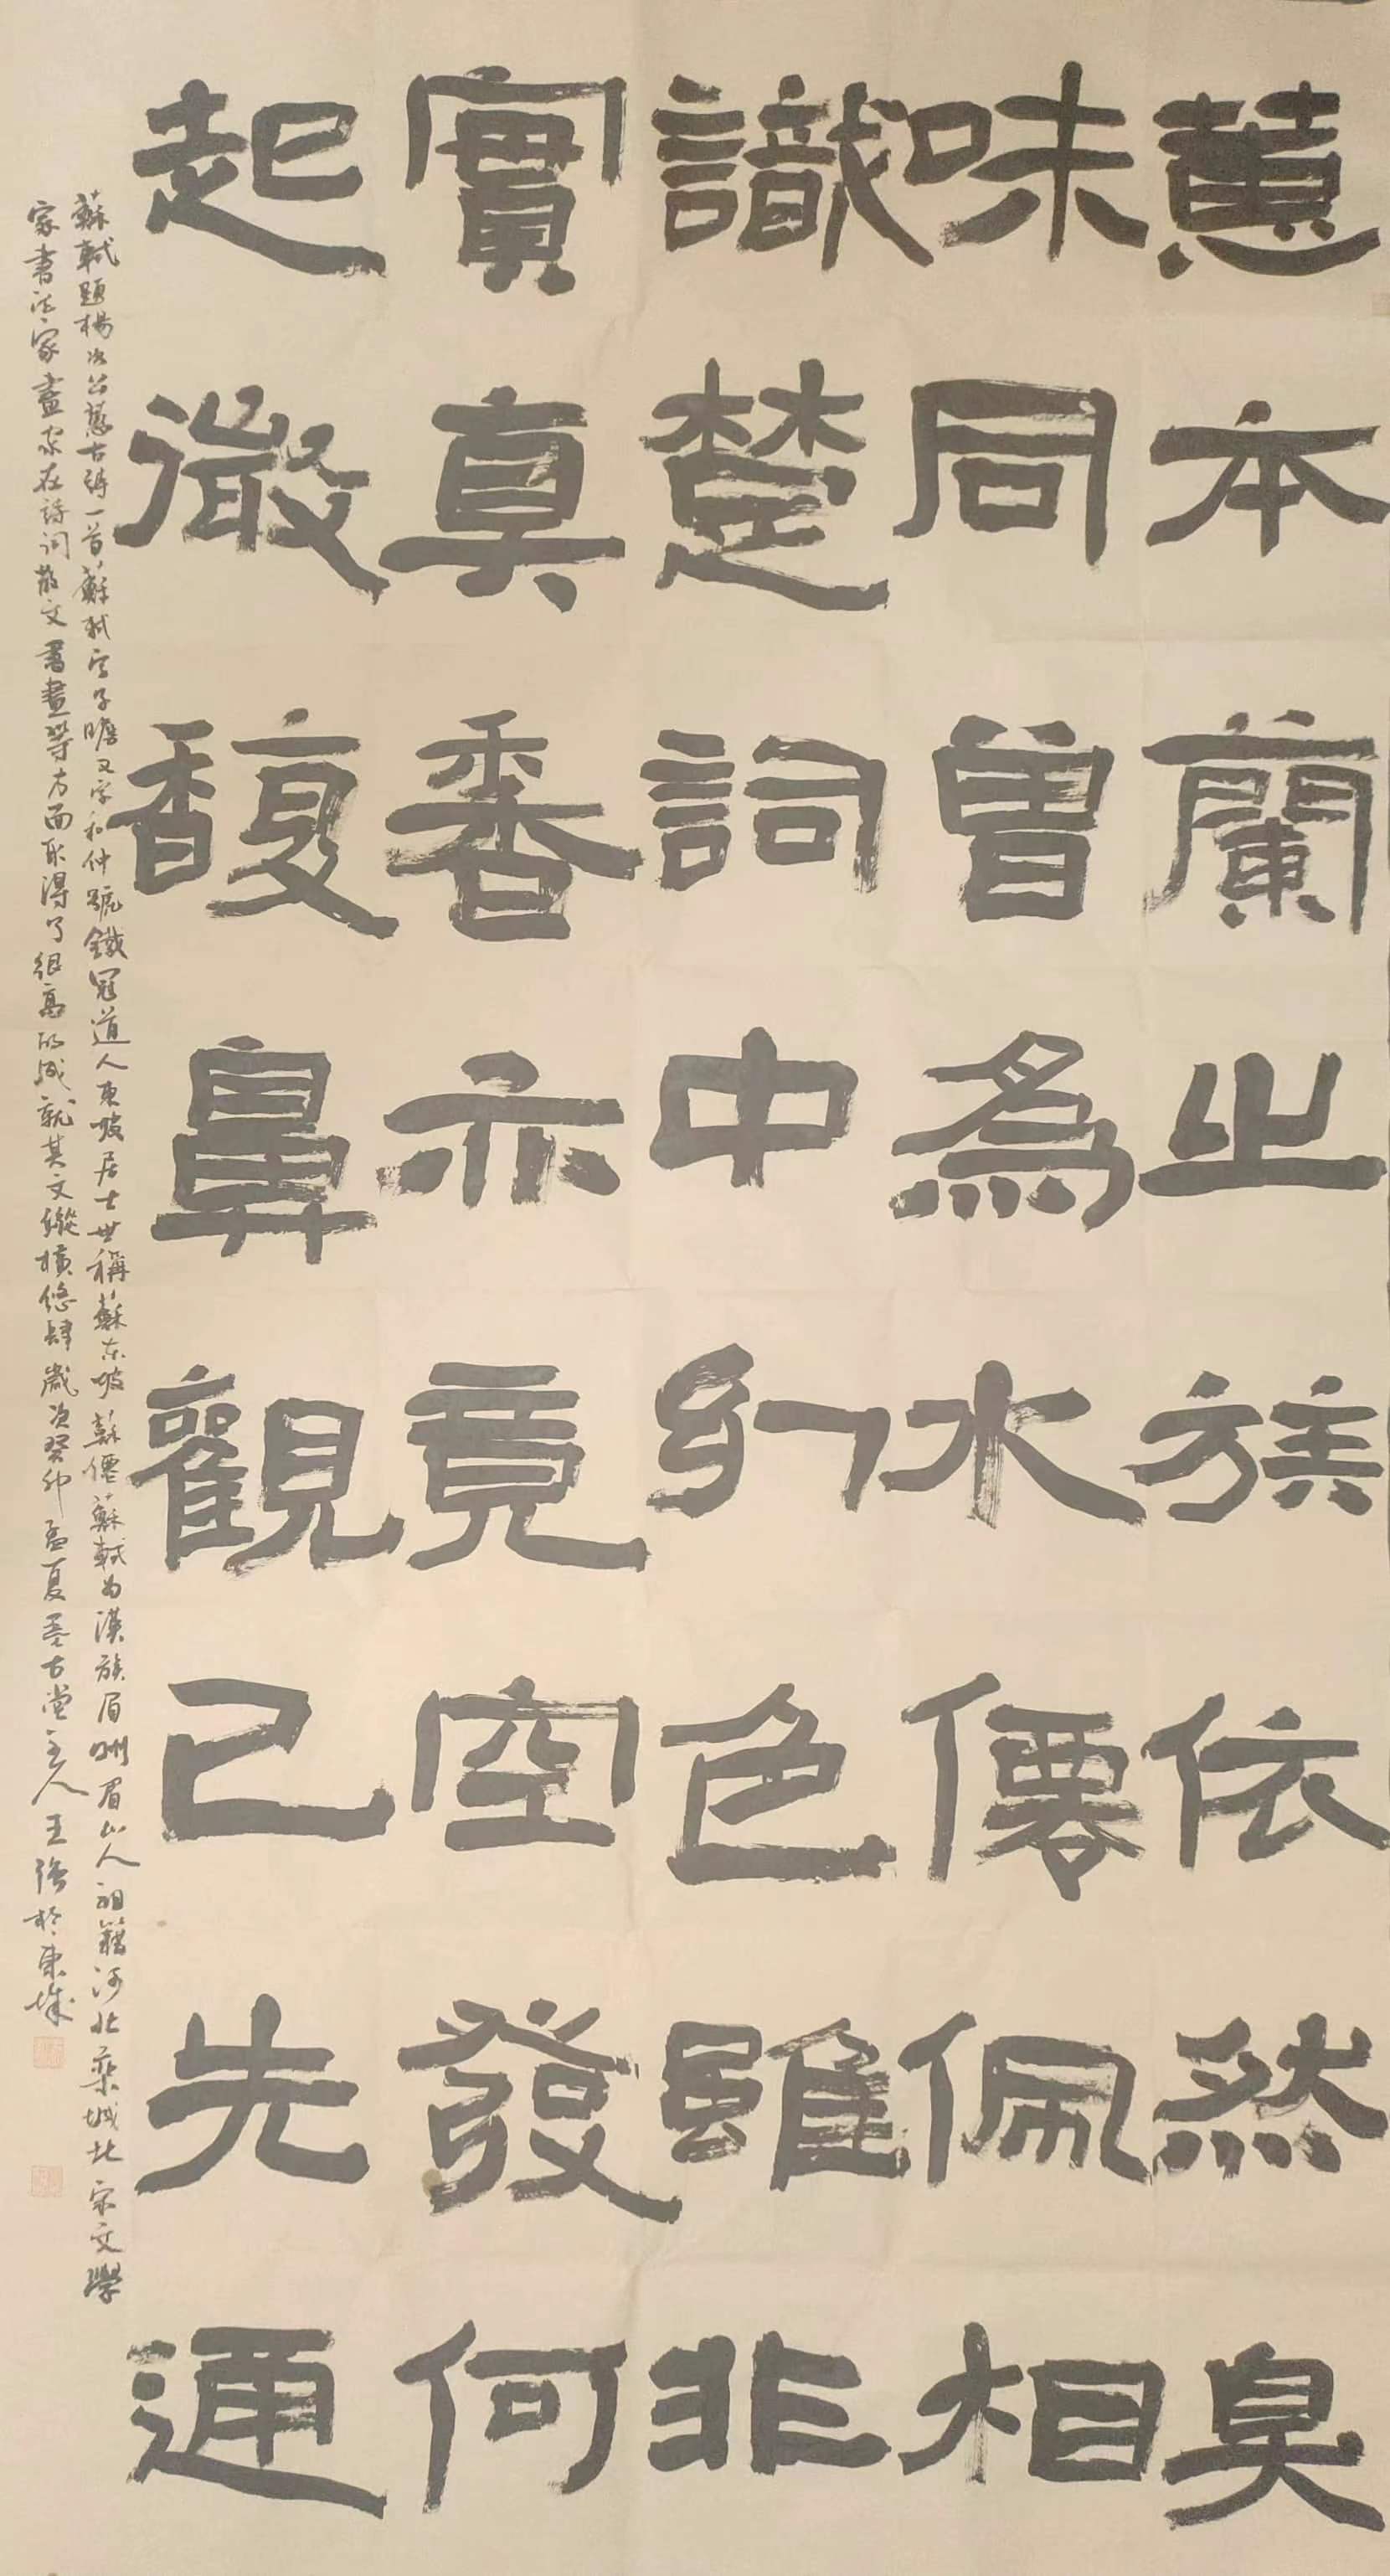 蕙本蘭之族依然臭
味同曾為水僊佩相
識楚詞中幻色雖非
實真香亦竟空發何
起微馥鼻觀已先通
蘇軾題楊次公蕙古詩一首蘇軾字子瞻又字和仲號鐵冠道人東坡居士世稱蘇東坡蘇僊蘇軾為漢族眉州眉山人祖籍河北欒城北宋文學
家書法家畫家在詩詞散文書畫等方面取得了很高的成就其文縱橫恣肆歲次癸卯孟夏古堂主人王強於東城